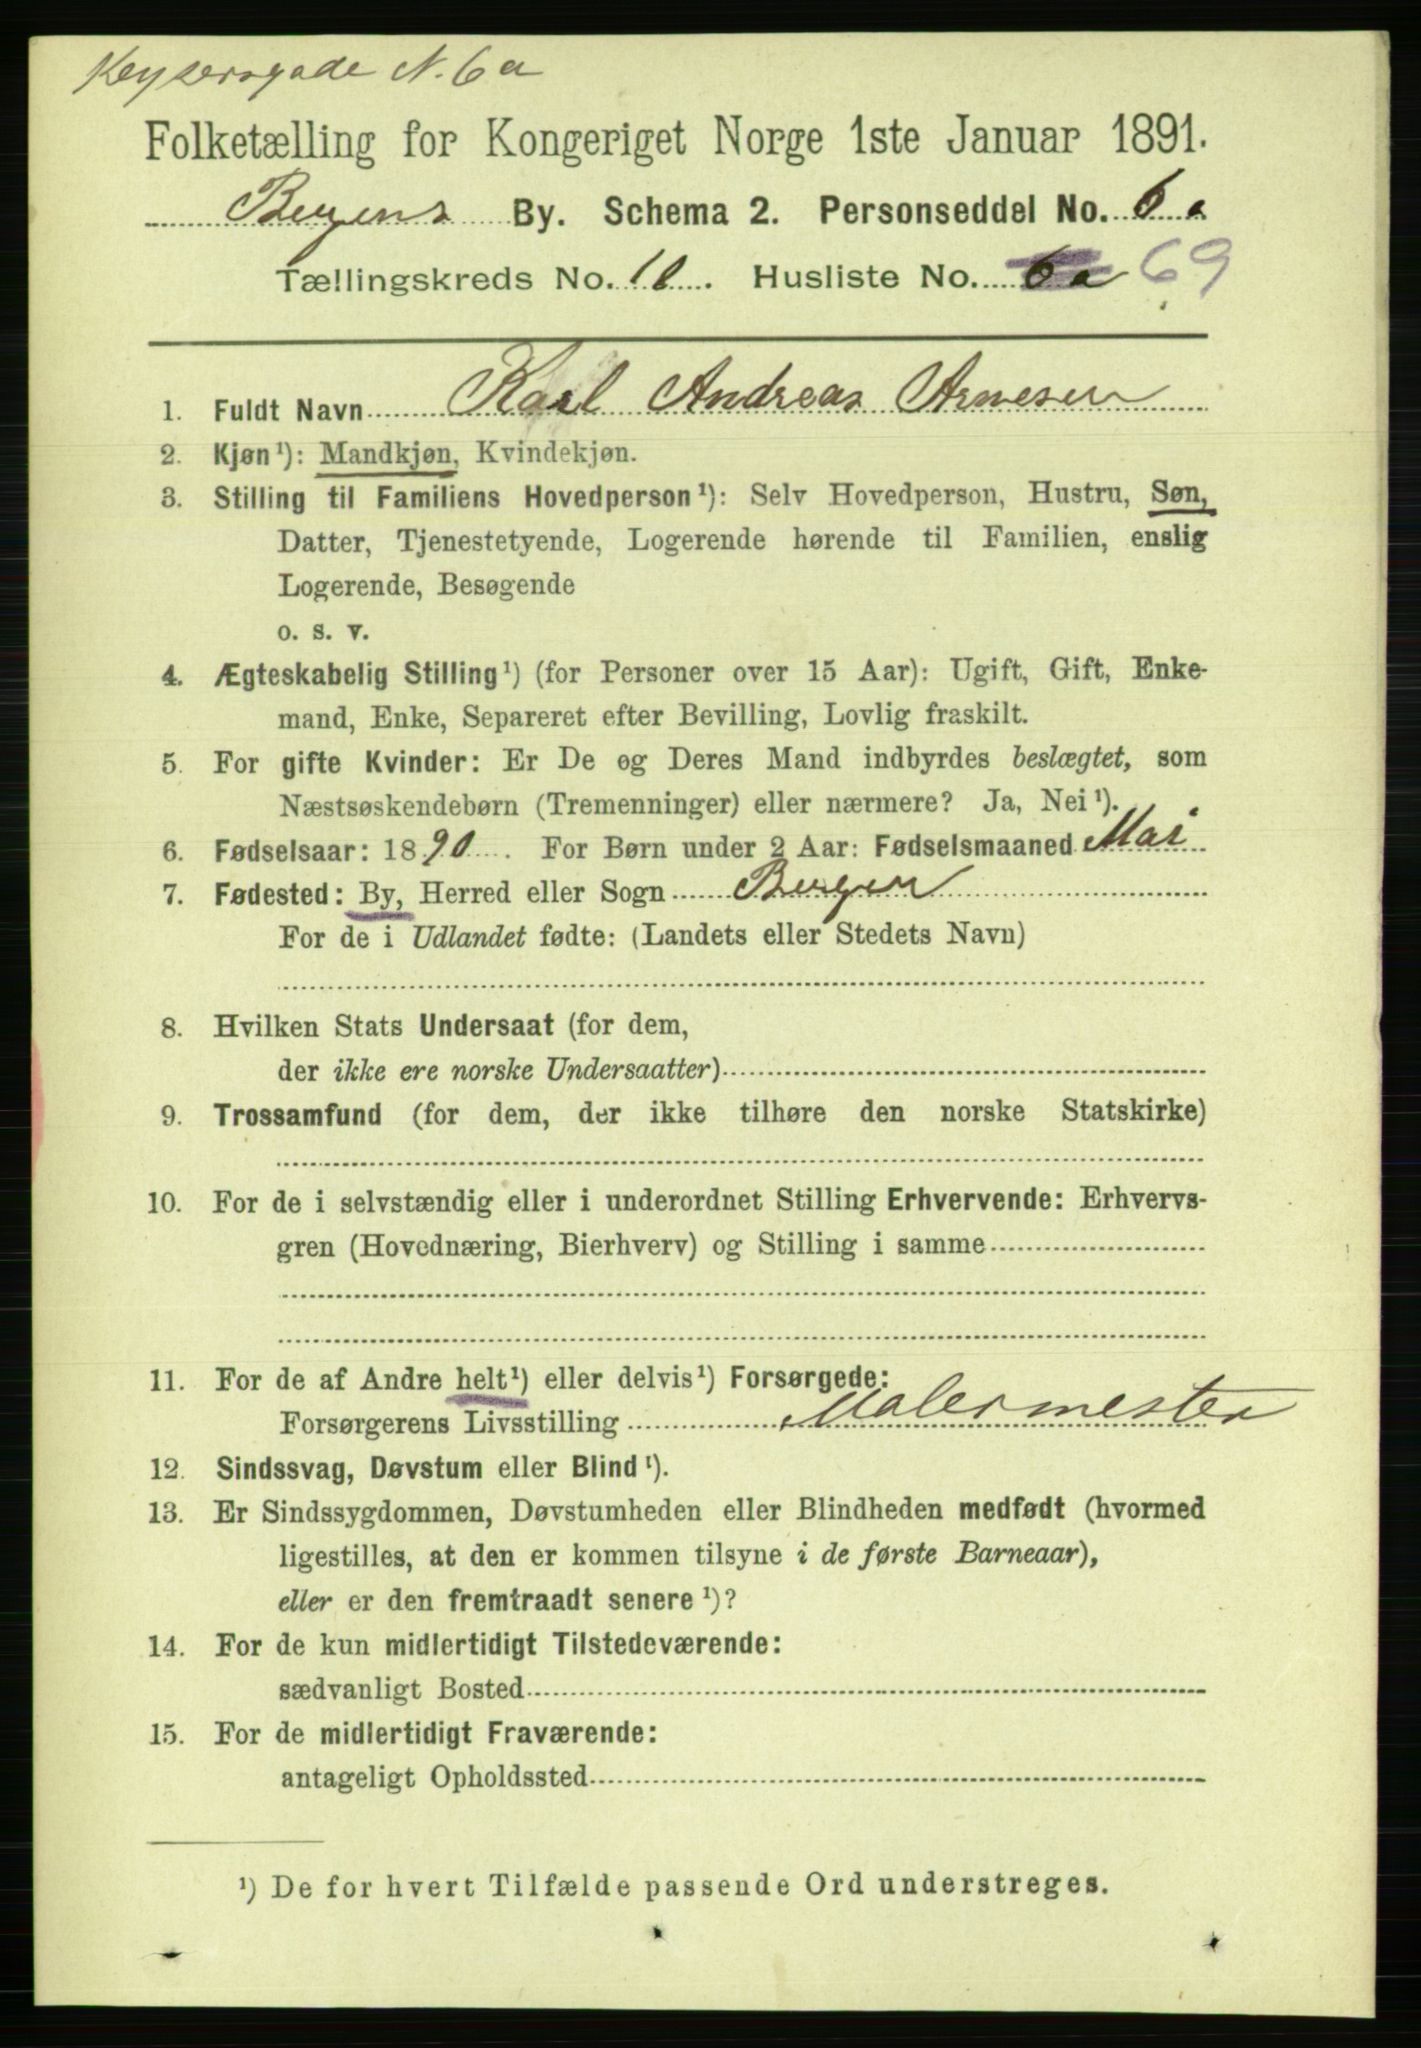 Keysersgade N. 6a
Folketælling for Kongeriget Norge 1ste Januar 1891.
Bergens By. Schema 2. Personseddel No. 6 a
Tællingskreds No. 10. Husliste No. 6a 69
1. Fuldt Navn Karl Andreas Arnesen
2. Kjøn¹): Mandkjøn, Kvindekjøn.
3. Stilling til Familiens Hovedperson¹): Selv Hovedperson, Hustru, Søn,
Datter, Tjenestetyende, Logerende hørende til Familien, enslig
Logerende, Besøgende
o. s. v.
4. Ægteskabelig Stilling¹) (for Personer over 15 Aar): Ugift, Gift, Enke-
mand, Enke, Separeret efter Bevilling, Lovlig fraskilt.
5. For gifte Kvinder: Er De og Deres Mand indbyrdes beslægtet, som
Næstsøskendebørn (Tremenninger) eller nærmere? Ja, Nei¹).
6. Fødselsaar: 1890. For Børn under 2 Aar: Fødselsmaaned Mai
7. Fødested: By, Herred eller Sogn Bergen
For de i Udlandet fødte: (Landets eller Stedets Navn)
8. Hvilken Stats Undersaat (for dem,
der ikke ere norske Undersaatter)
9. Trossamfund (for dem, der ikke tilhøre den norske Statskirke)
10. For de i selvstændig eller i underordnet Stilling Erhvervende: Erhvervs-
gren (Hovednæring, Bierhverv) og Stilling i samme
11. For de af Andre helt¹) eller delvis¹) Forsørgede:
Forsørgerens Livsstilling Malermester
12. Sindssvag, Døvstum eller Blind¹).
13. Er Sindssygdommen, Døvstumheden eller Blindheden medfødt (hvormed
ligestilles, at den er kommen tilsyne i de første Barneaar),
eller er den fremtraadt senere¹)?
14. For de kun midlertidigt Tilstedeværende:
sædvanligt Bosted
15. For de midlertidigt Fraværende:
antageligt Opholdssted
¹) De for hvert Tilfælde passende Ord understreges.